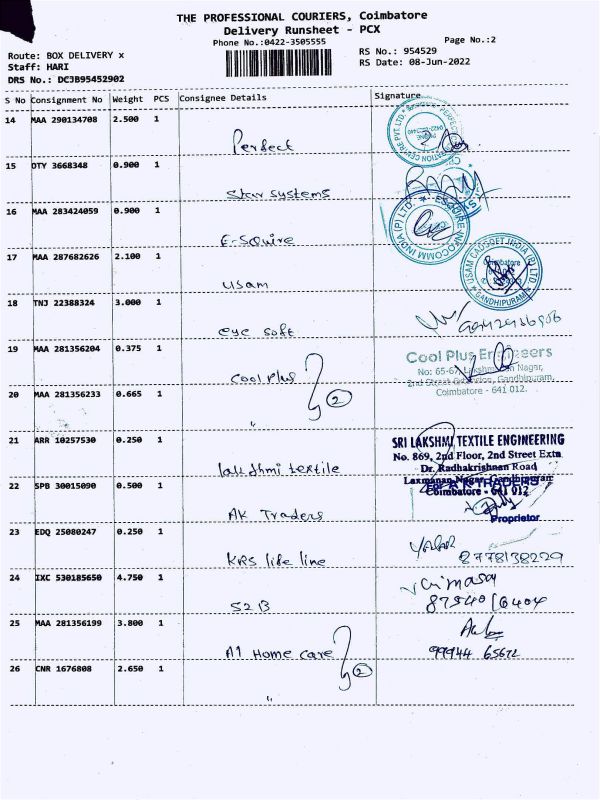 THE PROFESSIONAL COURIERS, Coimbatore
Delivery Runsheet - PCX
Phone No.:0422-3505555
Page No.:2
Route: BOX DELIVERY x
RS No.: 954529
Staff: HARI
RS Date: 08-Jun-2022
DRS No.: DCJB95452902
S No Consignment No Weight PCS Consignee Details Signature
14 MAA 290134708 2.500 1
Perfect
15 DTY 3668348 0.900 1
Star systems
16 MAA 283424059 0.900 1
E-SQuire
ESQUIRE INFOCOMM INDIA (P) LTD.
17 MAA 287682626 2.100 1
Usam
USAM CADSOFT INDIA (P) LTD.
Coimbatore
GANDHIPURAM
18 TNJ 22388324 3.000 1
eye soft
19 MAA 281356204 0.375 1
Cool Plus
2
Cool Plus Engineers
No: 65-67, Lakshmanan Nagar,
2nd Street Extension, Gandhipuram,
Coimbatore - 641 012.
20 MAA 281356233 0.665 1
"
21 ARR 10257530 0.250 1
lakdhmi textile
SRI LAKSHMI TEXTILE ENGINEERING
No. 869, 2nd Floor, 2nd Street Extn.
Dr. Radhakrishnan Road
Laxmanan Nagar, Gandhipuram
Coimbatore - 641 012
22 SPB 30015090 0.500 1
AK Traders
For A K TRADERS
Proprietor
23 EDQ 25080247 0.250 1
KRS life line
8778138229
24 IXC 530185650 4.750 1
S2B
25 MAA 281356199 3.800 1
A1 Home care
2
99944 65672
26 CNR 1676808 2.650 1
"